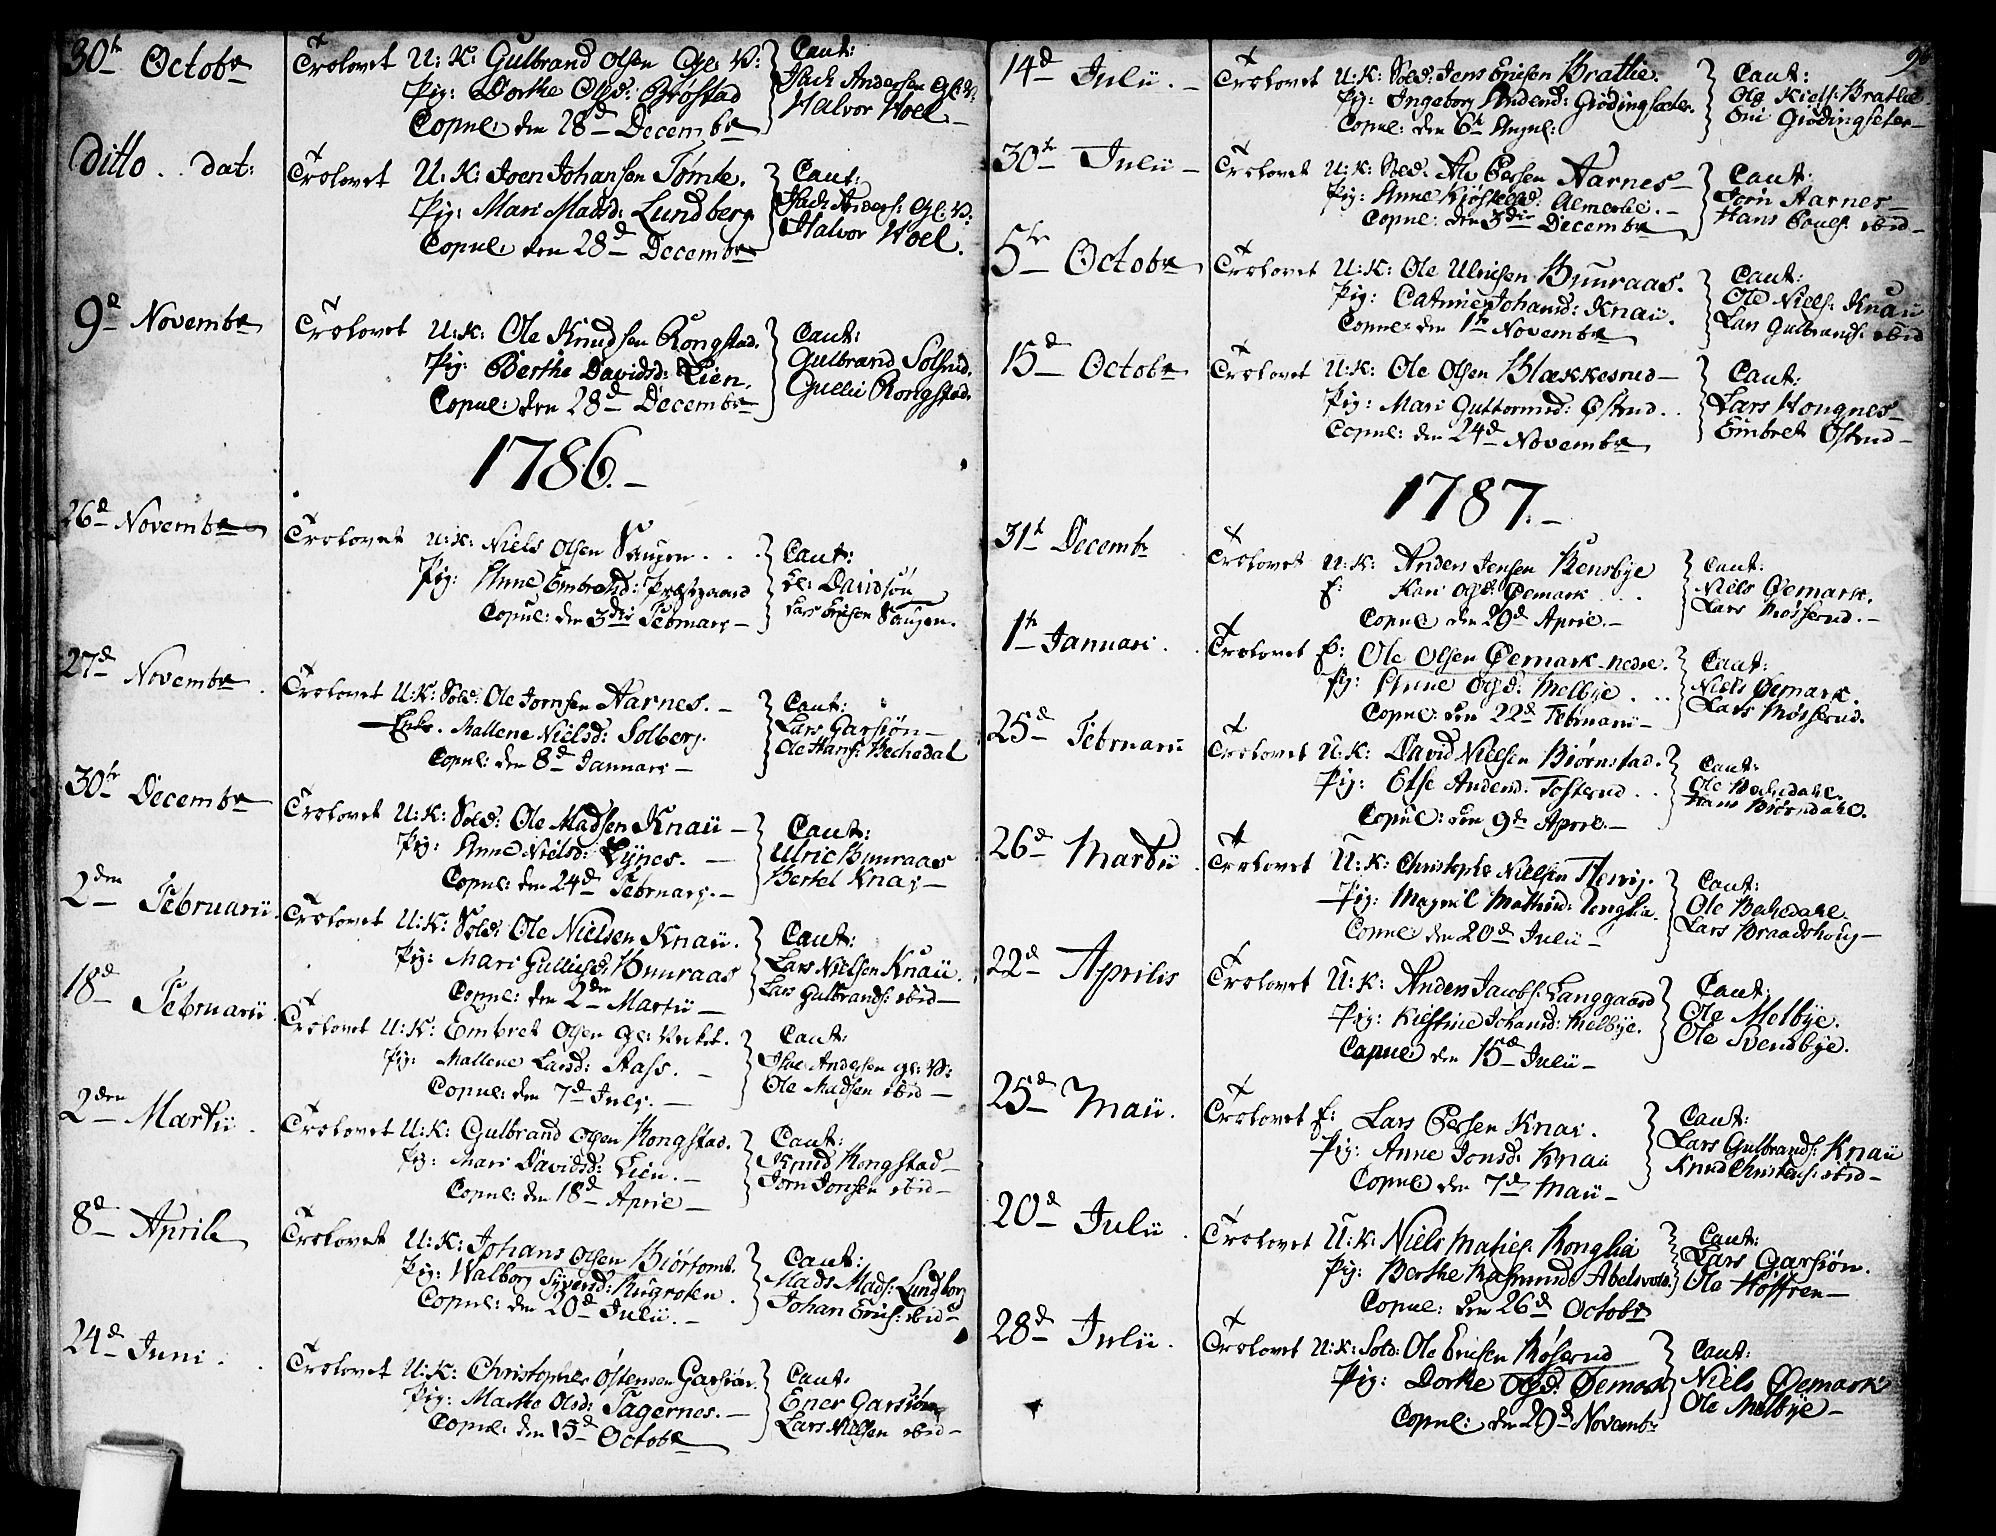 30te Octobr Trolovet U: K: Gulbrand Olsen Gl: V:
Pig: Dorthe Olsd: Brostad
Copul: den 28d Decembr
Caut:
Isach Andersen Gl: V:
Halvor Moel
Ditto . . dat: Trolovet U: K: Joen Johansen Tømte.
Pig: Mari Madsd: Lundberg
Copul: den 28d Decembr
Caut:
Isach Anders: Gl: V:
Halvor Moel.
9d Novembr Trolovet U: K: Ole Knudsen Rongstad.
Pig: Berthe Davidsd: Lien.
Copul: den 28d Decembr
Caut:
Gulbrand Solsrud.
Gullic Rongstad.
1786.
26d Novembr Trolovet U: K: Niels Olsen Saugen . . .
Pig: Anne Embretsd: Præstgaard
Copul: den 3die Februarj
Caut:
Davidsøn
Lars Ericsen Saugen.
27d Novembr Trolovet U: K: Sold: Ole Jornsen Aarnes.
Enke. Mallene Nielsd: Solberg.
Copul: den 8d Januari
Caut:
Lars Garsiøn
Ole Hans: Bechedal
30te Decembr Trolovet U: K: Sold: Ole Madsen Knaü
Pig: Anne Nielsd: Lynes.
Copul: den 24d Februarj.
Caut:
Ulric Buuraas
Bertel Knai
2den Februarii Trolovet U: K: Sold: Ole Nielsen Knaü.
Pig: Mari Gullicsd: Buuraas
Copul: den 2den Martii
Caut:
Lars Nielsen Knaü.
Lars Gulbrands: ibid
18d Februarii Trolovet U: K: Embret Olsen Gl: Verket.
Pig: Mallene Larsd: Aass.
Copul: den 7d Julj.
Caut:
Isac Andersen Gl: V:
Ole Madsen ibid
2den Martii . Trolovet U: K: Gulbrand Olsen Rongstad.
Pig: Mari Davidsd: Lien.
Copul: den 18d April
Caut:
Knud Rongstad
Jorn Jonsen ibid
8d Aprile Trolovet U: K: Johans Olsen Biørtomt.
Pig: Walborg Syversd: Rugroten .
Copul: den 20d Julii.
Caut:
Mads Mads: Lundberg
Johan Erics: ibid
24d Juni . . Trolovet U: K: Christopher Østensen Garsiøn.
Pig: Marthe Olsd: Tagernes.
Copul: den 15d Octobr
Caut:
Ener Garsiøn
Lars Nielsen ibid
14d Julii . Trolovet U: K: Sold: Jens Ericsen Brathe.
Pig: Ingeborg Andersd: Giødingsæter.
Copul: den 6te August:
Caut:
Ole Kiels: Brathe
Giødingseter
30te Julii Trolovet U: K: Sold: Ale Persen Aarnes
Pig: Anne
Copul: den 3die Decembr
Caut:
Jorn Aarnes
Hans Pouls: ibid
5te Octobr Trolovet U: K: Ole Ulricsen Buuraas.
Pig: Cathrine Johansd: Knaü.
Copul: den 1te Novembr
Caut:
Ole Niels: Knaü
Lars Gulbrands: ibid
15d Octobr Trolovet U: K: Ole Olsen Blækkesrud
Pig: Mari Guttormsd: Østrud . .
Copul: den 24d Novembr
Caut:
Lars Hongnes
Embret Østrud
1787.
31te Decembr Trolovet U: K: Anders Jensen Rensbye
E: Kari Olsd: Øemark . . .
Copul den 29d April.
Caut:
Niels Øemark.
Lars Møsserud.
1te Januari . Trolovet E: Ole Olsen Øemark nedre.
Pig: Anne Olsd: Melbye . . .
Copul: den 22d Februarii
Caut:
Niels Øemark.
Lars Møsserud.
25d Februarii Trolovet U: K: David Nielsen Biørnstad.
Pig: Else Andersd: Tosterud . .
Copul: den 9de April.
Caut:
Ole Bechedahl.
Hans Biørndahl.
26d Martii . Trolovet U: K: Christopher Nielsen
Pig: Magnil Mathisd: Ronglia.
Copul den 20d Julii
Caut:
Ole Bechedahl
Lars Braadshoug
22d Aprilis Trolovet U: K: Anders Jacobs: Langgaard
Pig: Kiestine Johansd: Melbye.
Copul den 15d Julii
Caut:
Ole Melbye.
Ole Svensbye.
25d Maii . Trolovet E: Lars Persen Knai .
Pig: Anne Jonsd: Knaii
Copul den 7d Maii
Caut:
Lars Gulbrands: Knaü
Knud Christens: ibid
20d Julii . Trolovet U: K: Niels Maties: Ronglia
Pig: Berthe Rasmusd: Abelsvold.
Copul: den 26d Octobr
Caut:
Lars Garsiøn.
Ole Høffren
28d Julii . Trolovet U: K: Sold: Ole Ericsen Røserud
Pig: Dorthe Olsd: Øemark
Copul: den 29d Novembr
Caut:
Niels Øemark
Ole Melbye